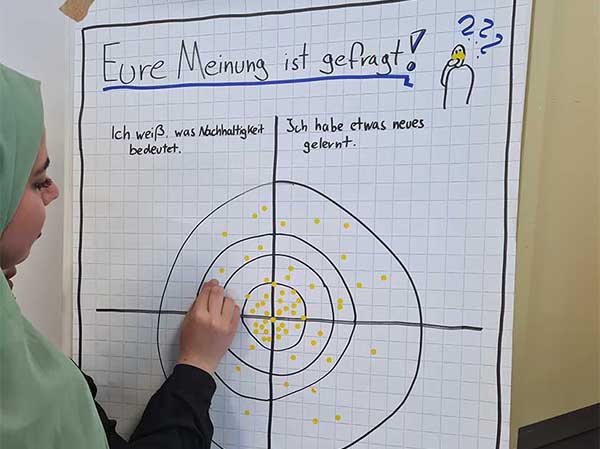 Eure Meinung ist gefragt!
???
Ich weiß, was Nachhaltigkeit
bedeutet.
Ich habe etwas neues
gelernt.